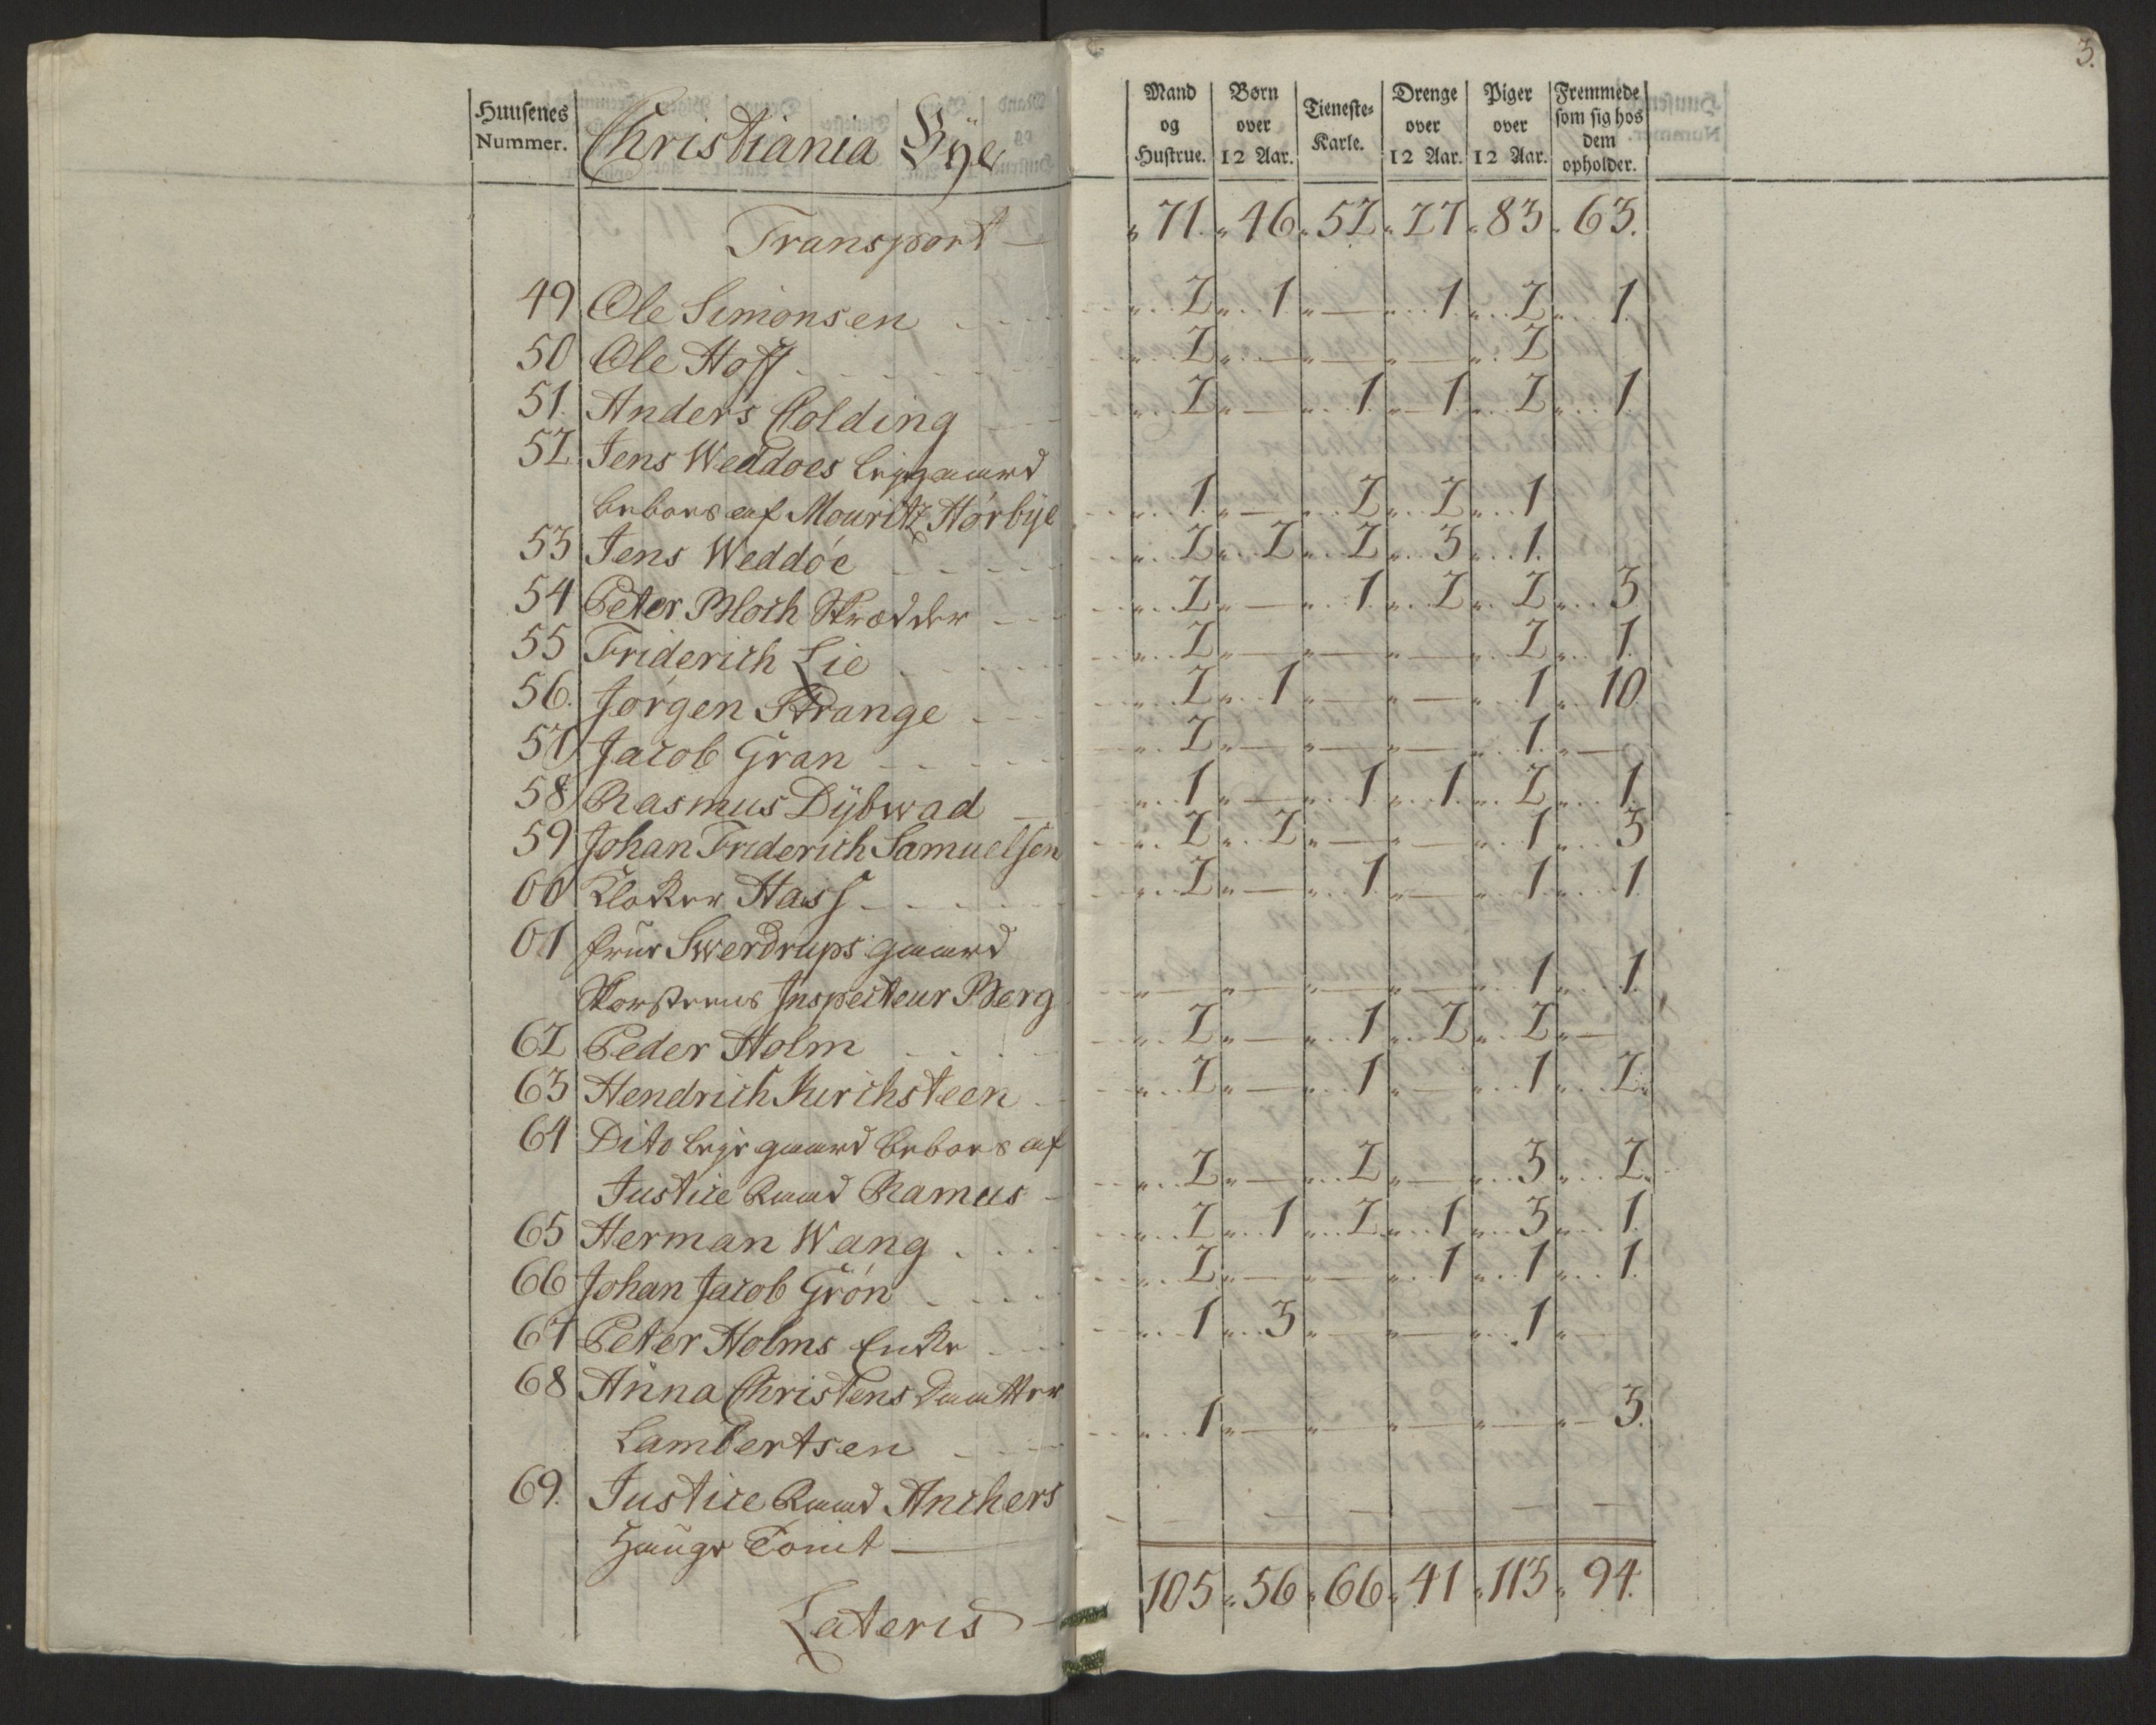 3.
Huusenes Nummer. Christiania Bÿe Mand og Hustrue. Børn over 12 Aar. Tieneste-Karle. Drenge over 12 Aar. Piger over 12 Aar. Fremmede som sig hos dem opholder.
Transport — 71. 46. 52. 27. 83. 63.
49 Ole Simonsen 2 1 — 1 2 1
50 Ole Hoff 2 — — — 2
51. Anders Colding 2 — 1 1 2 1
52 Jens Weddoes leiegaard
beboes af Mouritz Hørbÿe 1 — 2 2 1
53 Jens Weddøe 2 2 2 3 1.
54 Peter Bloch Skrædder 2 — 1 2 2 3
55 Friderich Lie 2 — — — 2 1.
56. Jørgen Strange 2 1 — — 1 10
57 Jacob Gran 2 — — — 1. —
58 Rasmus Dÿbwad 1 — 1 1 2 1.
59 Johan Friderich Samuelsen 2 2 — — 1 3
60 Kloker Hass 2 — 1 — 1 1
61 frue Swerdrups gaard
Inspecteur Berg — — — — 1 1.
62 Peder Holm 2 — 1 2 2 —
63 Hendrich Kirchsteen 2 — 1 — 1 2
64 Dito leye gaard beboes af
Justice Raad Ramus 2 — 2 — 3 2
65 Herman Wang 2 1 2 1 3 1.
66 Johan Jacob Grøn 2 — — 1 1 1
67 Peter Holms Enke 1 3 — — 1 —
68 Anna Christens Daatter
Lambertsen 1 — — — — 3.
69. Justice Raad Anchers
Hauge Tomt — — — — — — —
Lateris 105. 56. 66. 41. 113. 94.